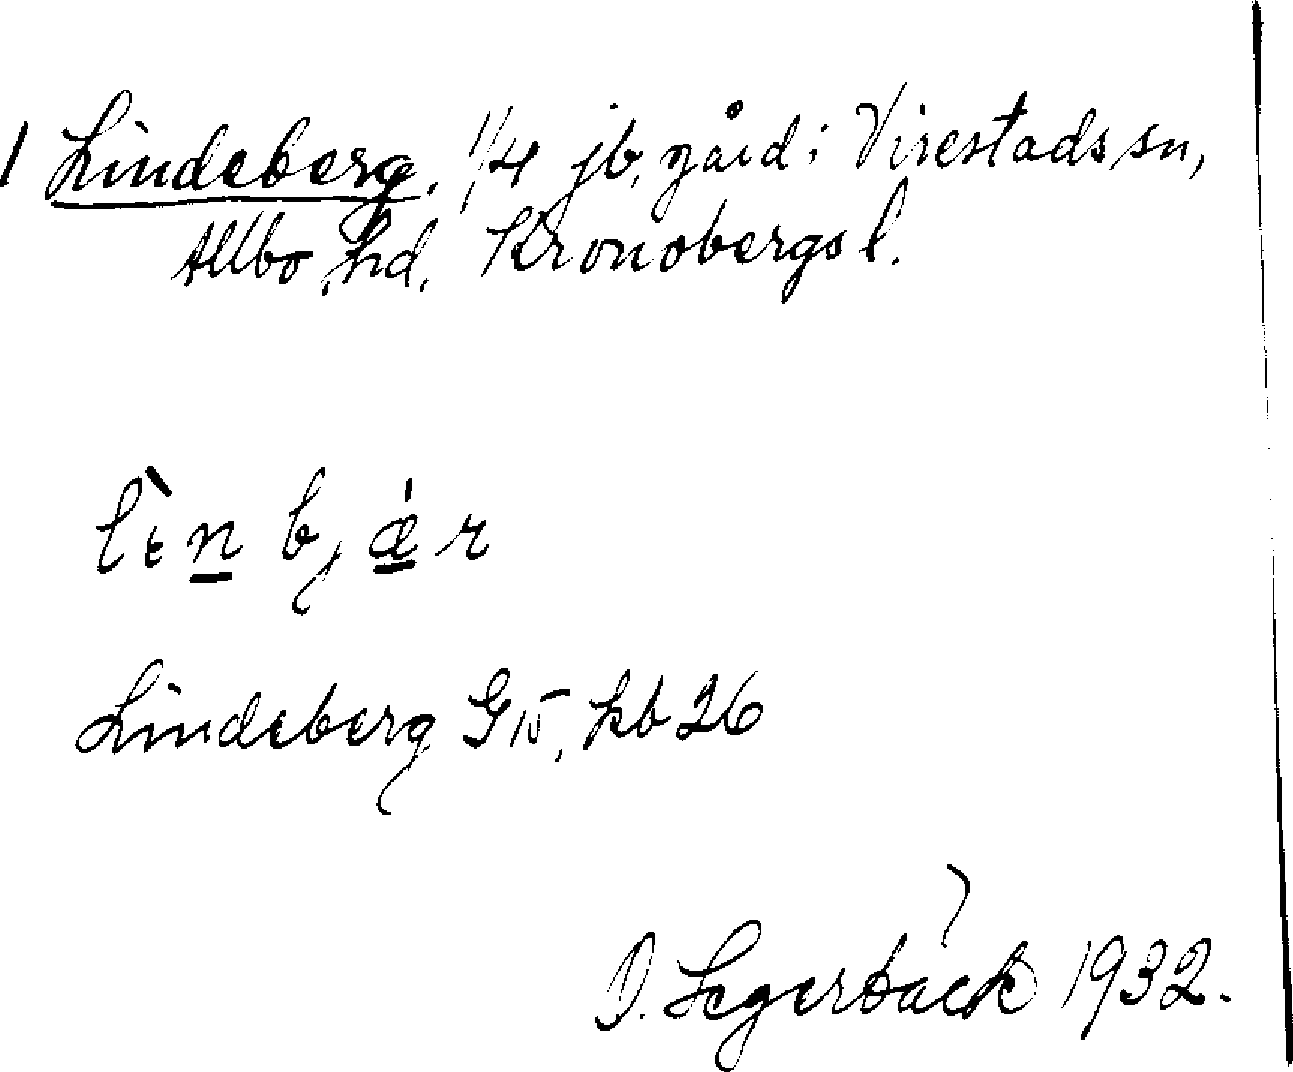 1 Lindeberg. 1/4 jb, gård i Virestads sn,
Allbo hd. Kronobergs l.
lìn bjǽr
Lindeberg G 15, kb 26
Segerbäck 1932.